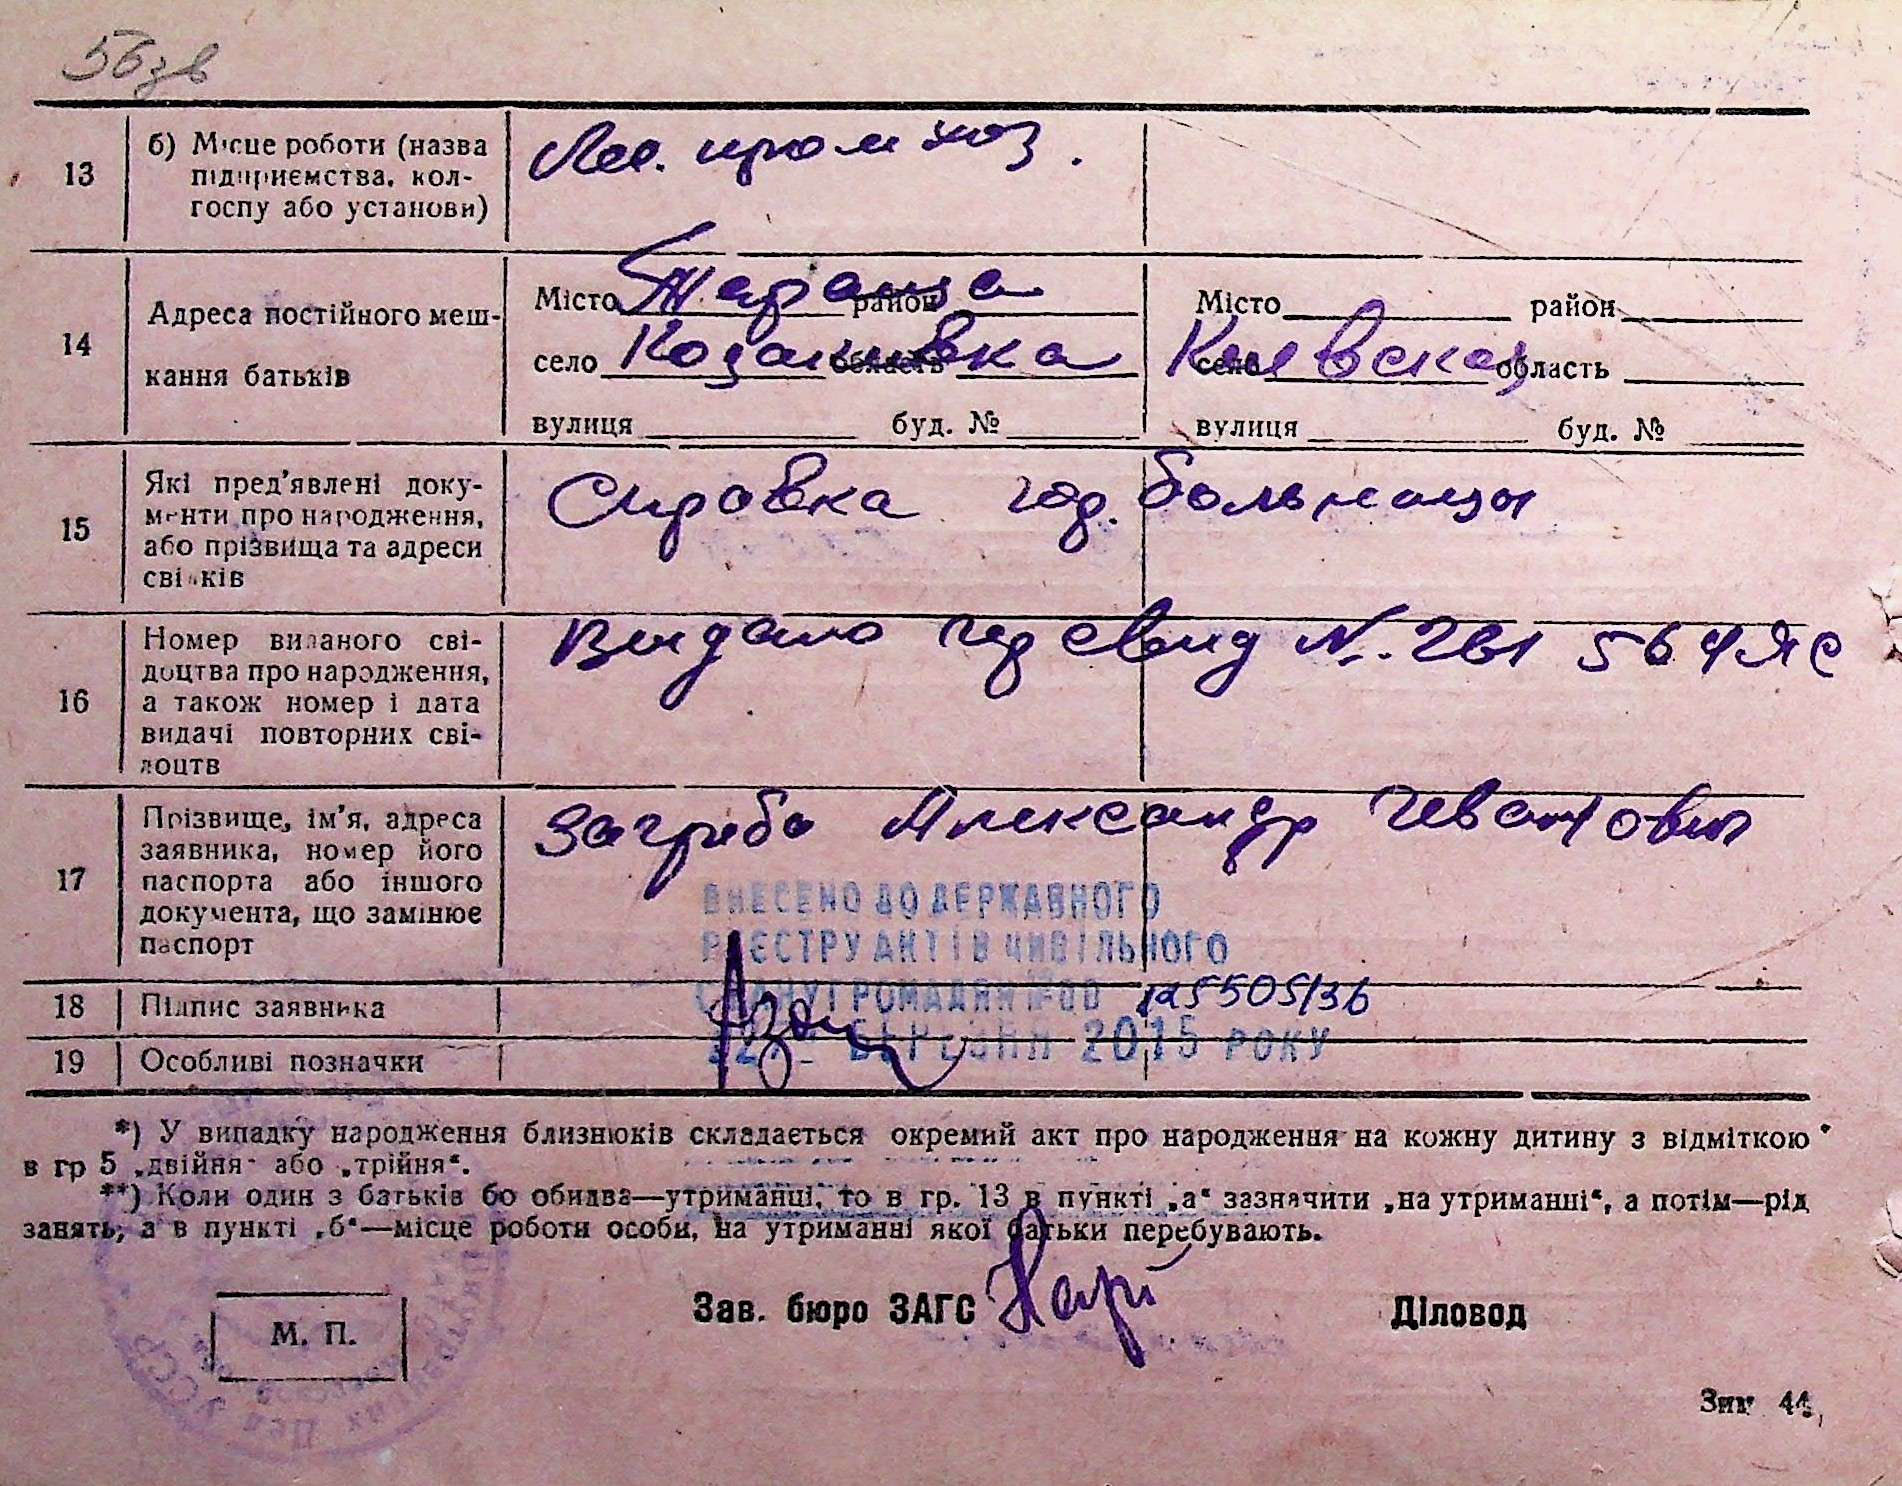 56зв
13
б) Місце роботи (назва
підприємства, кол-
госпу або установи)
Лес. промхоз.
14
Адреса постійного меш-
кання батьків
Місто Тараща район
село Козаковка область
вулиця буд. №
Місто район
село Киевская область
вулиця буд. №
15
Які пред'явлені доку-
менти про народження,
або прізвища та адреси
свідків
Справка гор. больницы
16
Номер виданого сві-
доцтва про народження,
а також номер і дата
видачі повторних сві-
доцтв
Выдано свид № 261 564 ЯС
17
Прізвище, ім'я, адреса
заявника, номер його
паспорта або іншого
документа, що замінює
паспорт
Загреба Александр
ВНЕСЕНО ДО ДЕРЖАВНОГО
РЕЄСТРУ АКТІВ ЦИВІЛЬНОГО
СТАНУ ГРОМАДЯН №00 125505136
БЕРЕЗНЯ 2015 РОКУ
18
Підпис заявника
19
Особливі позначки
*) У випадку народження близнюків складається окремий акт про народження на кожну дитину з відміткою
в гр 5 „двійня“ або „трійня“.
**) Коли один з батьків бо обидва—утриманці, то в гр. 13 в пункті „а“ зазначити „на утриманні“, а потім—рід
занять, а в пункті „б“—місце роботи особи, на утриманні якої батьки перебувають.
М. П.
Зав. бюро ЗАГС
Діловод
УССР
Зик 44